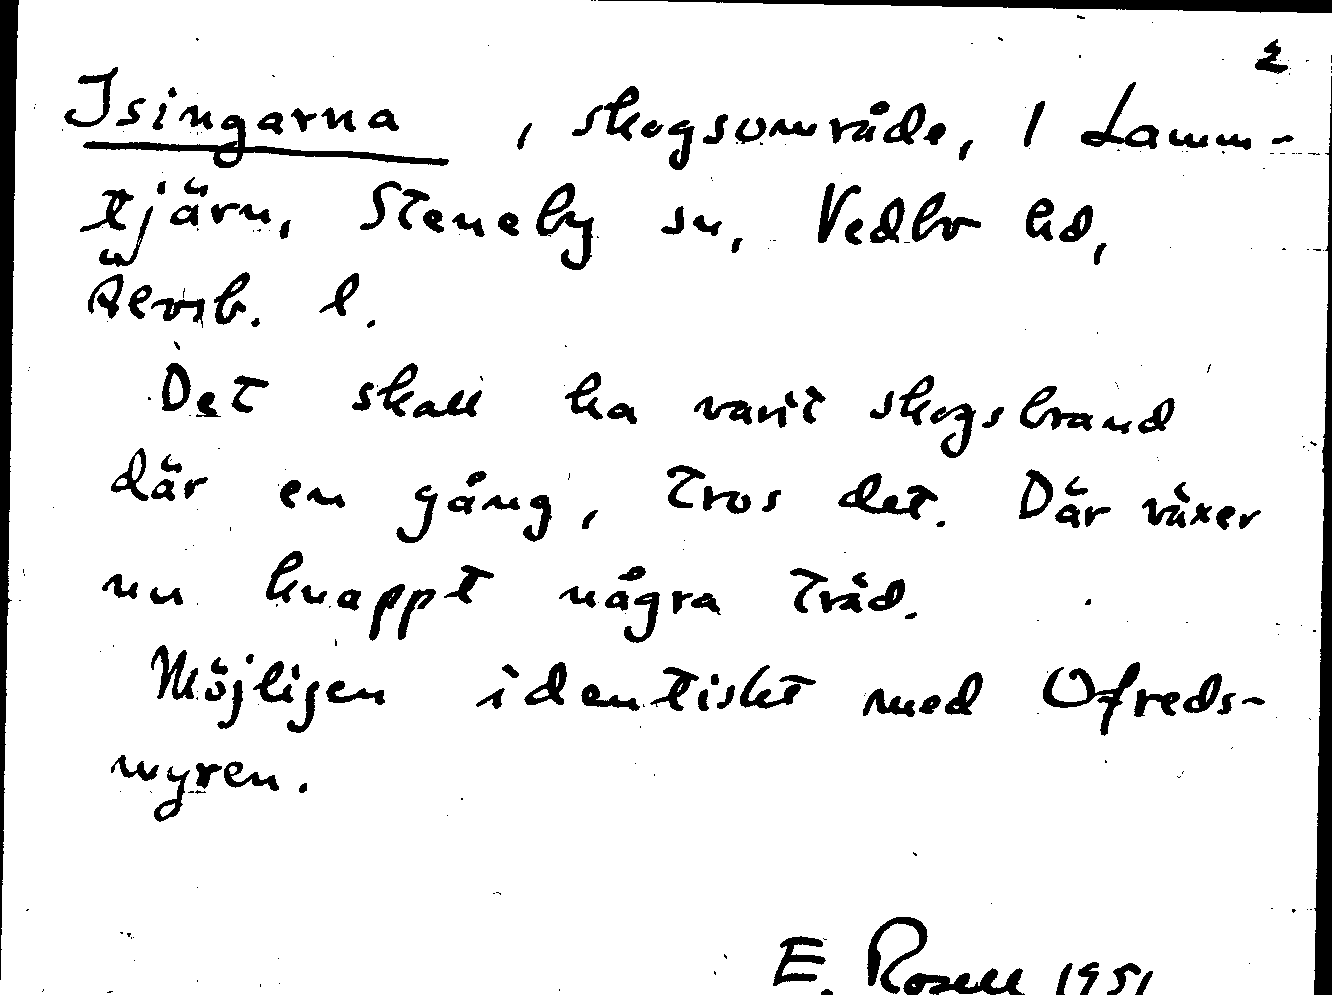 2
Isingarna, skogsområde, 1 Lamm-
tjärn, Steneby sn, Vedbo hd,
Älvsb. l.
Det skall ha varit skogsbrand
där en gång, tros det. Där växer
nu knappt några träd.
Möjligen identiskt med Ofreds-
myren.
E. Rosell 1951